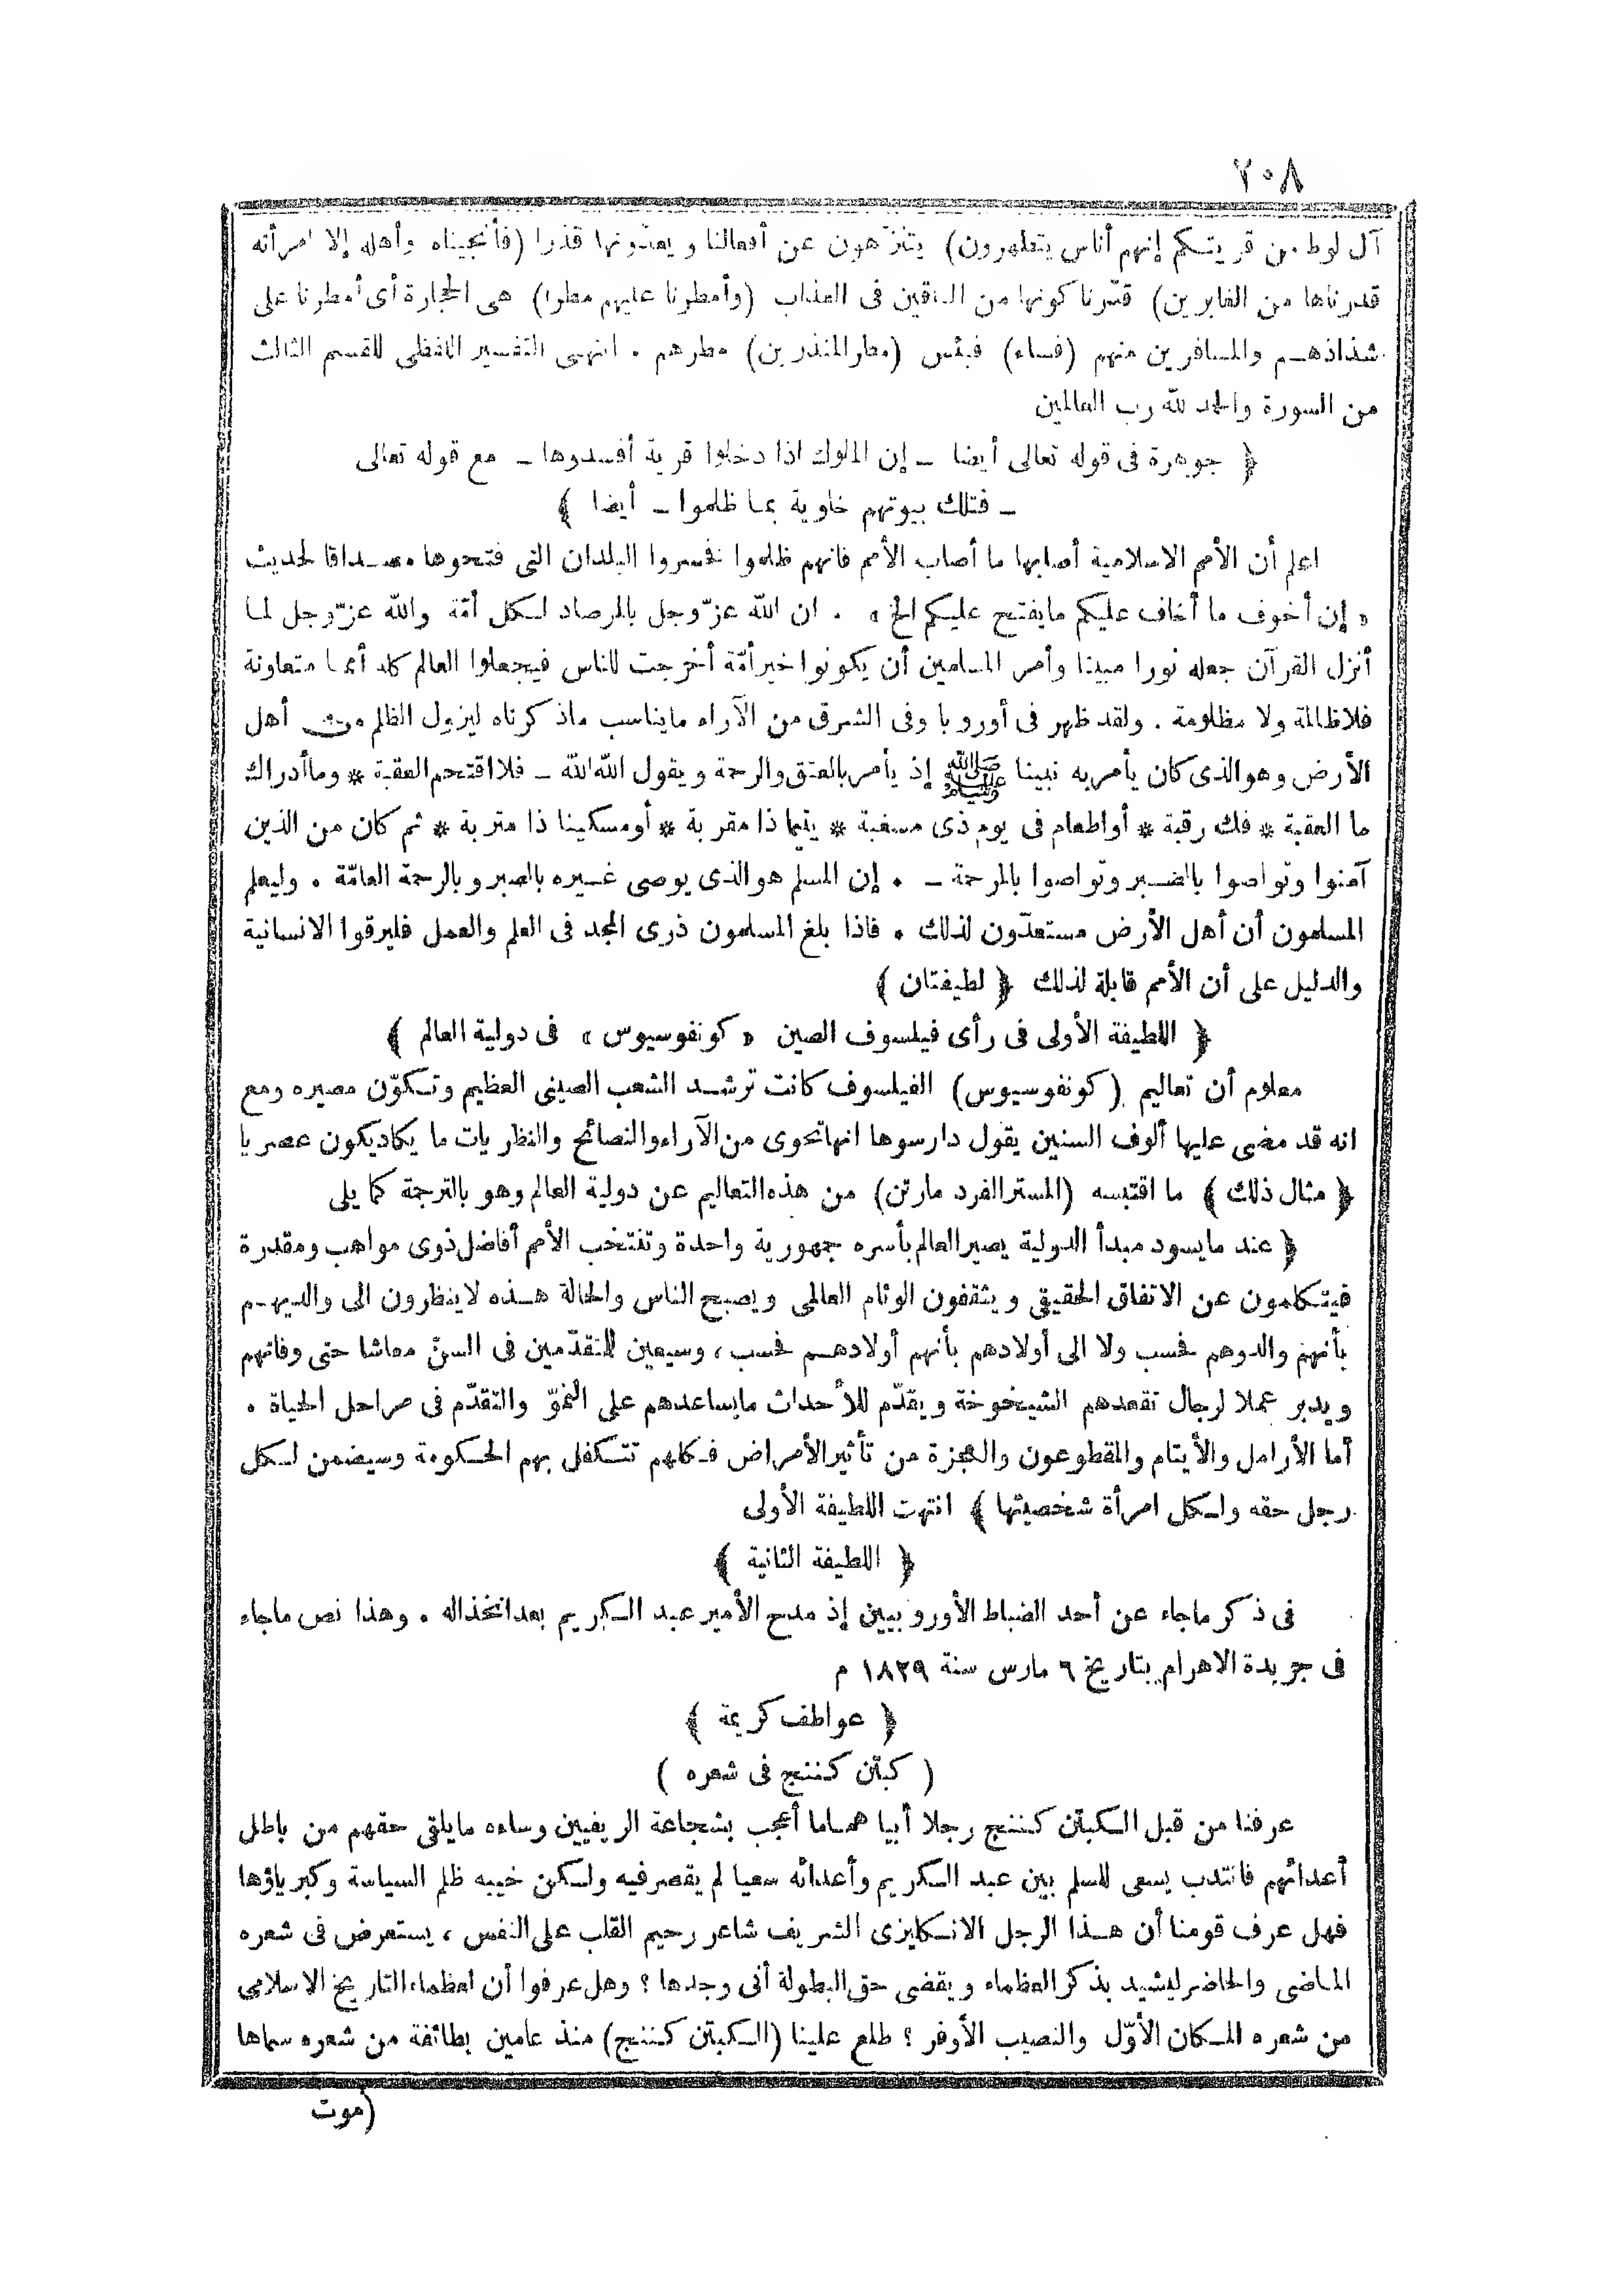 ٢٠٨
آل لوط من قريتكم إنهم أناس يتطهرون) يتنزّهون عن أفعالنا ويعدّونها قذرا (فأنجيناه وأهله إلا امرأته
قدرناها من الغابرين) قدّرنا كونها من الباقين فى العذاب (وأمطرنا عليهم مطرا) هى الحجارة أى أمطرنا على
شذاذهم والمسافرين منهم (فساء) فبئس (مطر المنذرين) مطرهم . انتهى التفسير اللفظى للقسم الثالث
من السورة والحمد لله رب العالمين
﴿ جوهرة فى قوله تعالى أيضا ــ إن الملوك اذا دخلوا قرية أفسدوها ــ مع قوله تعالى
ــ فتلك بيوتهم خاوية بما ظلموا ــ أيضا ﴾
اعلم أن الأمم الاسلامية أصابها ما أصاب الأمم فانهم ظلموا فخسروا البلدان التى فتحوها مصداقا لحديث
« إن أخوف ما أخاف عليكم مايفتح عليكم الخ » . ان الله عزّ وجل بالمرصاد لكل أمّة والله عزّ وجل لما
أنزل القرآن جعله نورا مبينا وأمر المسلمين أن يكونوا خير أمّة أخرجت للناس فيجعلوا العالم كله أمما متعاونة
فلا ظالمة ولا مظلومة . ولقد ظهر فى أوروبا وفى الشرق من الآراء مايناسب ماذكرناه ليزول الظلم من أهل
الأرض وهو الذى كان يأمر به نبينا ﷺ إذ يأمر بالعتق والرحمة ويقول الله لله ــ فلا اقتحم العقبة * وما أدراك
ما العقبة * فك رقبة * أو اطعام فى يوم ذى مسغبة * يتيما ذا مقربة * أو مسكينا ذا متربة * ثم كان من الذين
آمنوا وتواصوا بالصبر وتواصوا بالمرحمة ــ . إن المسلم هو الذى يوصى غيره بالصبر وبالرحمة العامّة . وليعلم
المسلمون أن أهل الأرض مستعدّون لذلك . فاذا بلغ المسلمون ذرى المجد فى العلم والعمل فليرقوا الانسانية
والدليل على أن الأمم قابلة لذلك ﴿ لطيفتان ﴾
﴿ اللطيفة الأولى فى رأى فيلسوف الصين « كونفوسيوس » فى دولية العالم ﴾
معلوم أن تعاليم (كونفوسيوس) الفيلسوف كانت ترشد الشعب الصينى العظيم وتكوّن مصيره ومع
انه قد مضى عليها ألوف السنين يقول دارسوها انها تحوى من الآراء والنصائح والنظريات ما يكاد يكون عصريا
﴿ مثال ذلك ﴾ ما اقتبسه (المستر الفرد مارتن) من هذه التعاليم عن دولية العالم وهو بالترجمة كما يلى
﴿ عند مايسود مبدأ الدولية يصير العالم بأسره جمهورية واحدة وتنتخب الأمم أفاضل ذوى مواهب ومقدرة
فيتكلمون عن الاتفاق الحقيقى ويثقفون الوئام العالمى ويصبح الناس والحالة هذه لاينظرون الى والديهم
بأنهم والدوهم فحسب ولا الى أولادهم بأنهم أولادهم فحسب ، وسيعين للمتقدّمين فى السنّ معاشا حتى وفاتهم
ويدبر عملا لرجال تقعدهم الشيخوخة ويقدّم للأحداث مايساعدهم على النموّ والتقدّم فى مراحل الحياة .
أما الأرامل والأيتام والمقطوعون والعجزة من تأثير الأمراض فكلهم تتكفل بهم الحكومة وسيضمن لكل
رجل حقه ولكل امرأة شخصيتها ﴾ انتهت اللطيفة الأولى
﴿ اللطيفة الثانية ﴾
فى ذكر ماجاء عن أحد الضباط الأوروبيين إذ مدح الأمير عبد الكريم بعد انخذاله . وهذا نص ماجاء
فى جريدة الاهرام بتاريخ ٦ مارس سنة ١٨٢٩ م
﴿ عواطف كريمة ﴾
( كبتن كننج فى شعره )
عرفنا من قبل الكبتن كننج رجلا أبيا هماما أعجب بشجاعة الريفيين وساءه مايلقى حقهم من باطل
أعدائهم فانتدب يسعى للسلم بين عبد الكريم وأعدائه سعيا لم يقصر فيه ولكن خيبه ظلم السياسة وكبرياؤها
فهل عرف قومنا أن هذا الرجل الانكليزى الشريف شاعر رحيم القلب على النفس ، يستعرض فى شعره
الماضى والحاضر ليشيد بذكر العظماء ويقضى حق البطولة أنى وجدها ؟ وهل عرفوا أن لعظماء التاريخ الاسلامى
من شعره المكان الأوّل والنصيب الأوفر ؟ طلع علينا (الكبتن كننج) منذ عامين بطائفة من شعره سماها
(موت